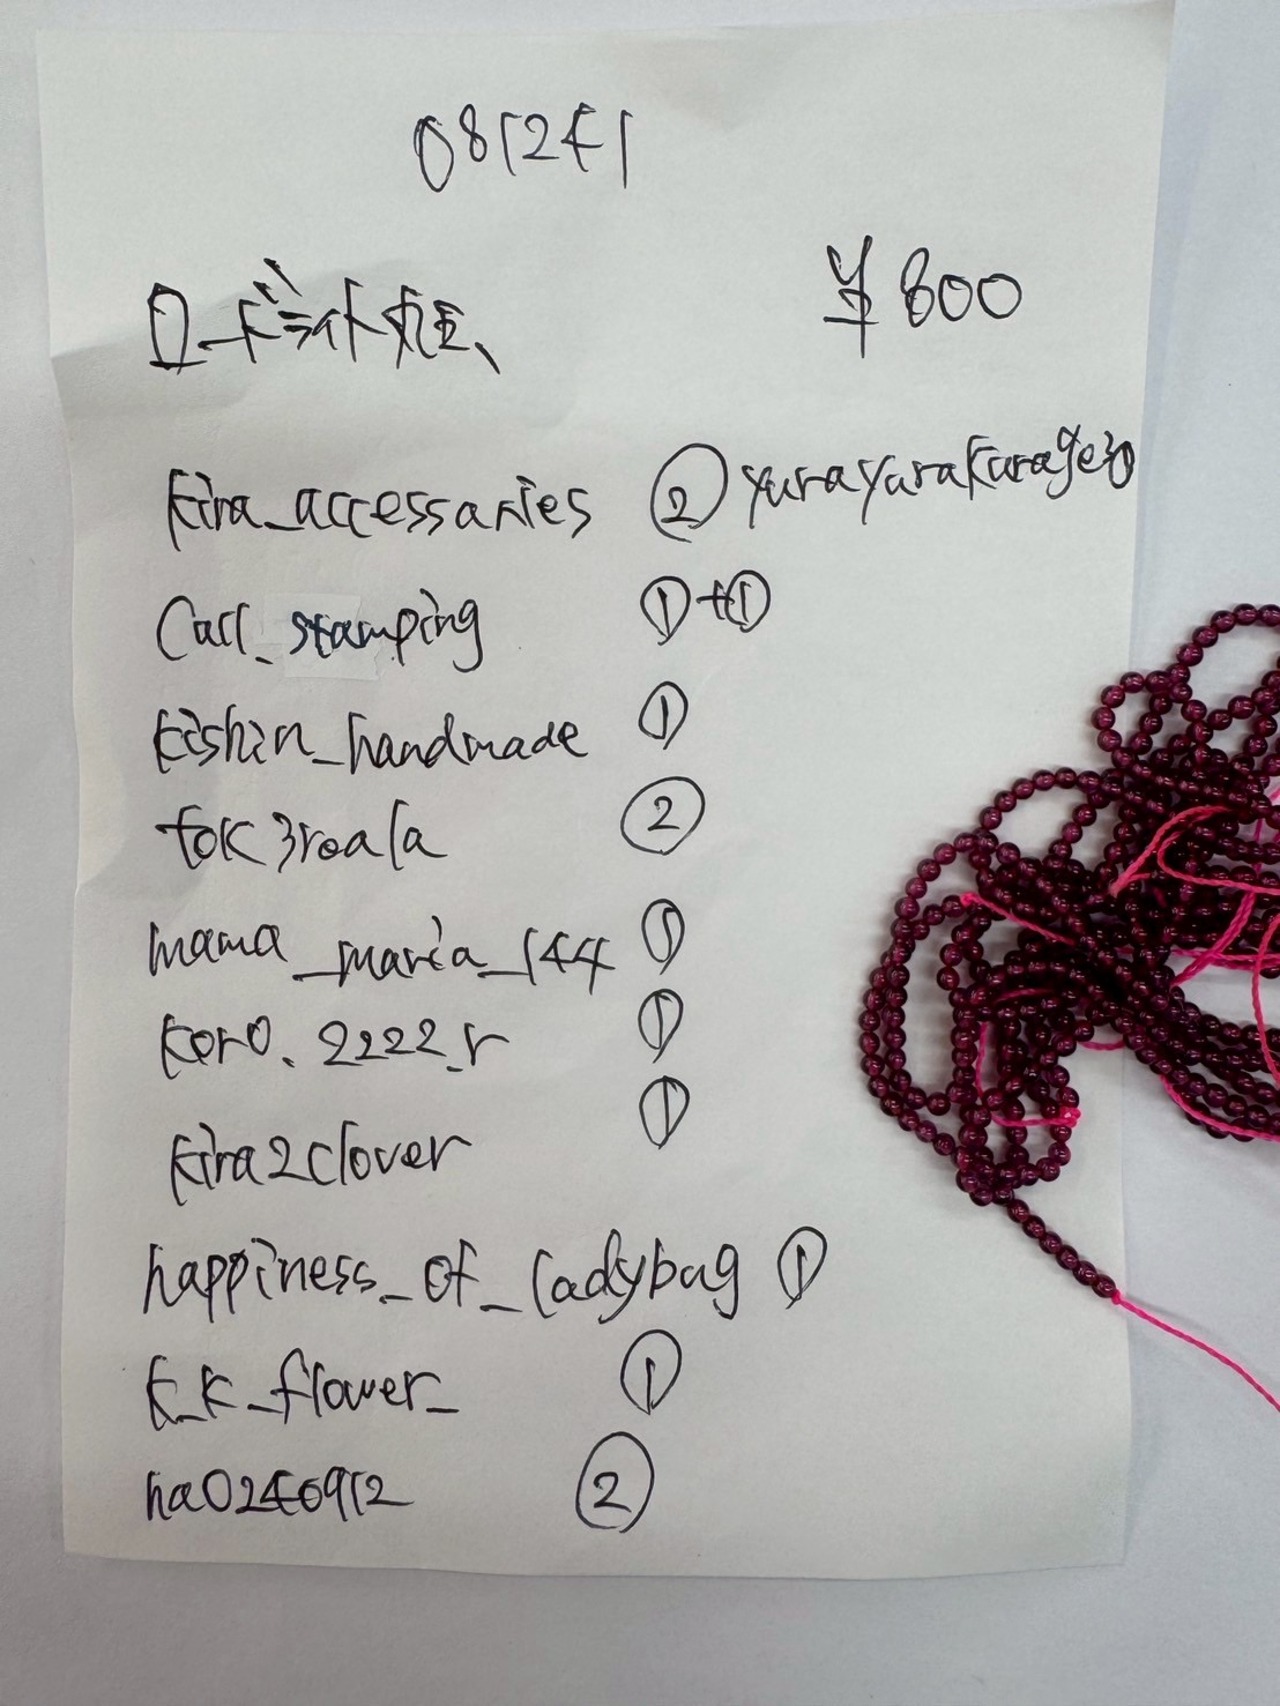 081241
ロードライト 丸玉、 ¥800
kira_accessaries ② yurayurakurage30
Carl_stamping ①+①
kishin_handmade ①
tok3roala ②
mama_maria_144 ①
koro.2222_r ①
kira2clover ①
happiness_of_ladybug ①
k_k_flower_ ①
ha02460912 ②